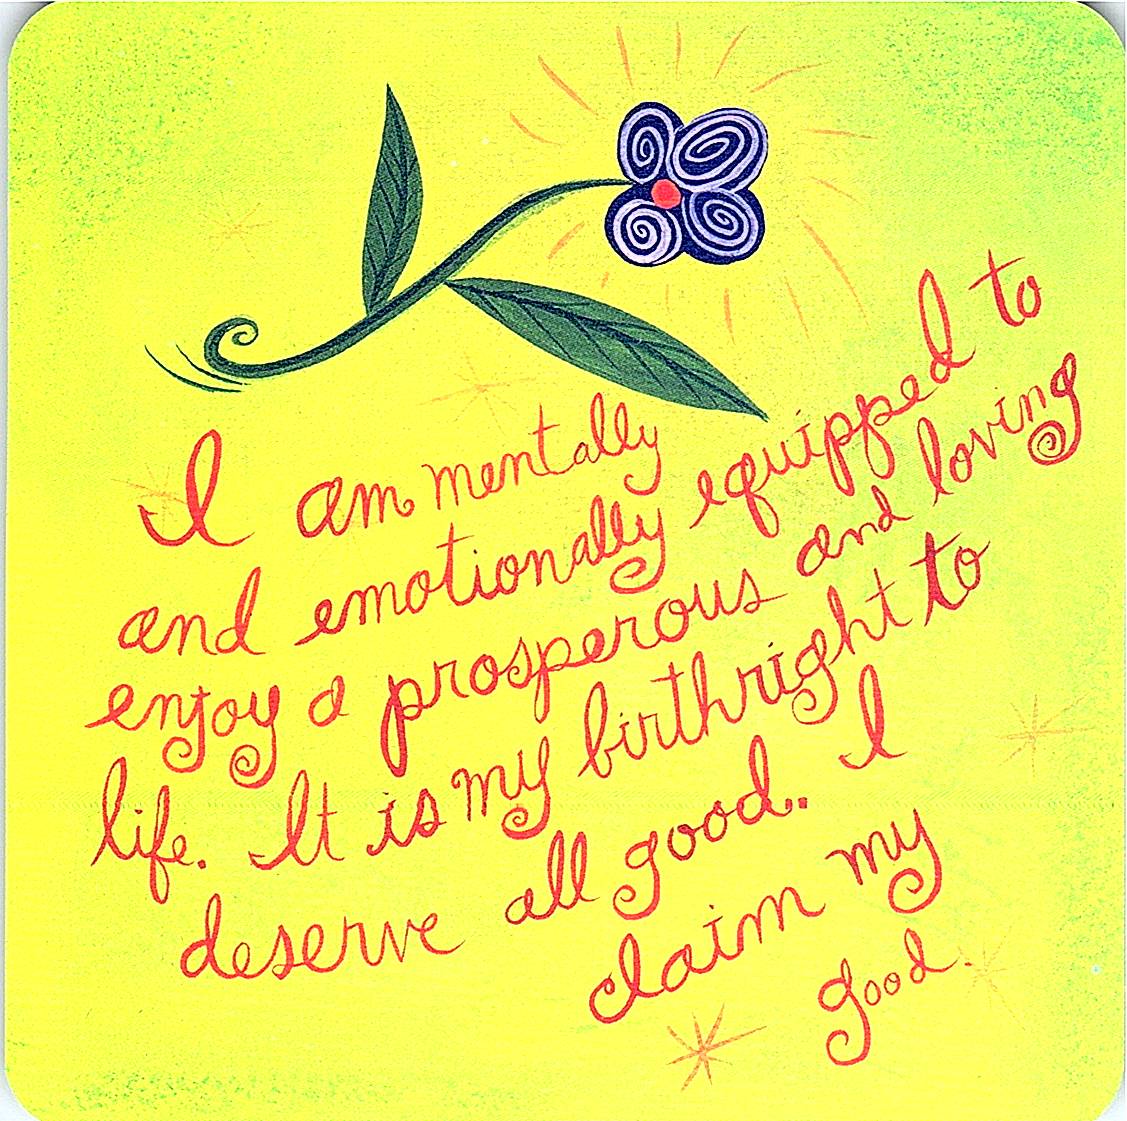 I am mentally
and emotionally equipped to
enjoy a prosperous and loving
life. It is my birthright to
deserve all good.. I
claim my
good.